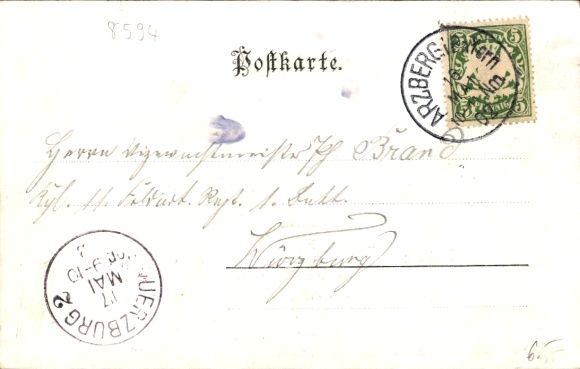 8594
Postkarte.
ARZBERG
5
5 5
Herrn Vizewachtmeister Ph Brand
Kgl. 11. Feldart. Regt. 1. Batt.
Würzburg
WUERZBURG 2
17
MAI
9-10